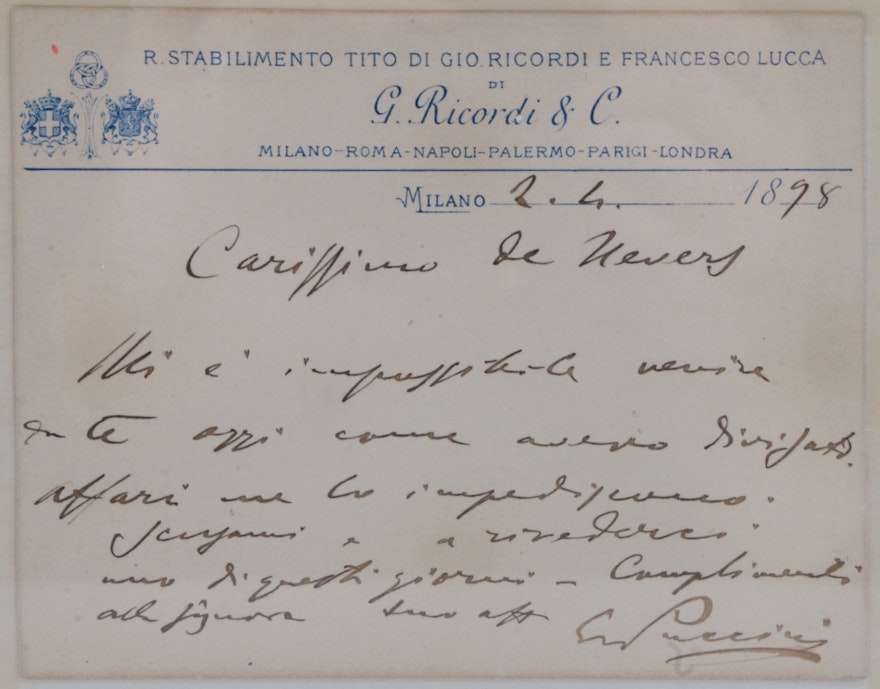 R. STABILIMENTO TITO DI GIO. RICORDI E FRANCESCO LUCCA
DI
G. Ricordi & C.
MILANO-ROMA-NAPOLI-PALERMO-PARIGI-LONDRA
MILANO 2. 4. 1898
Carissimo de Nevers
Mi è impossibile venire
da te oggi come avevo divisato.
affari me lo impediscono.
Scusami e a rivederci
uno di questi giorni – Complimenti
alla signora tuo aff
G Puccini